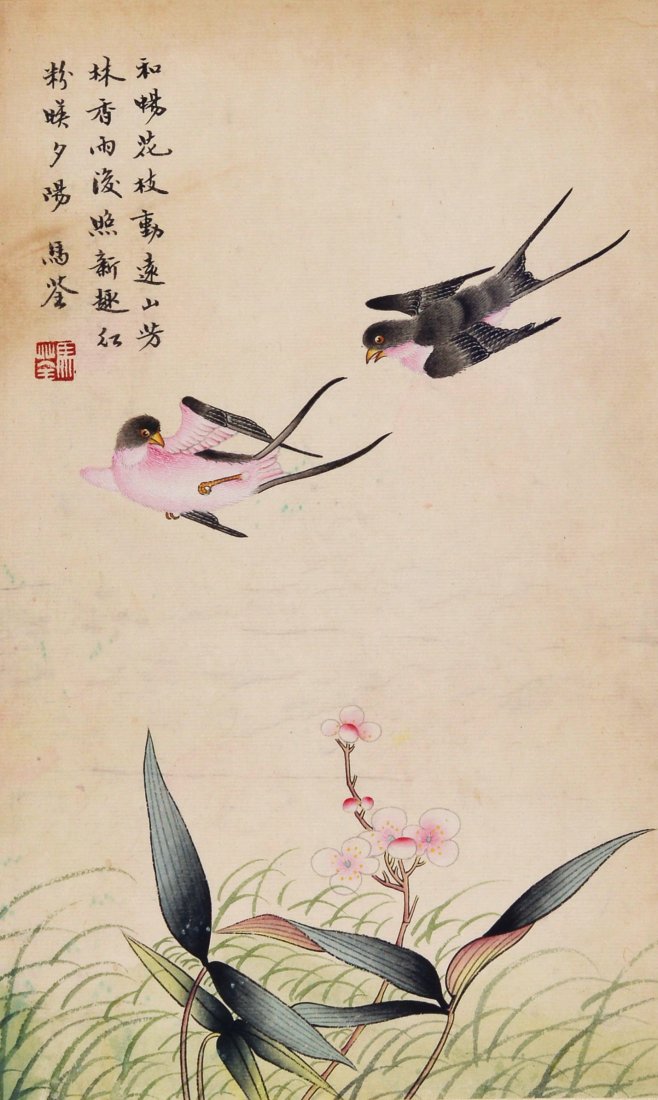 和暢花枝動遠山芳
林香雨後照新趣紅
粉暎夕陽 馬荃
馬荃